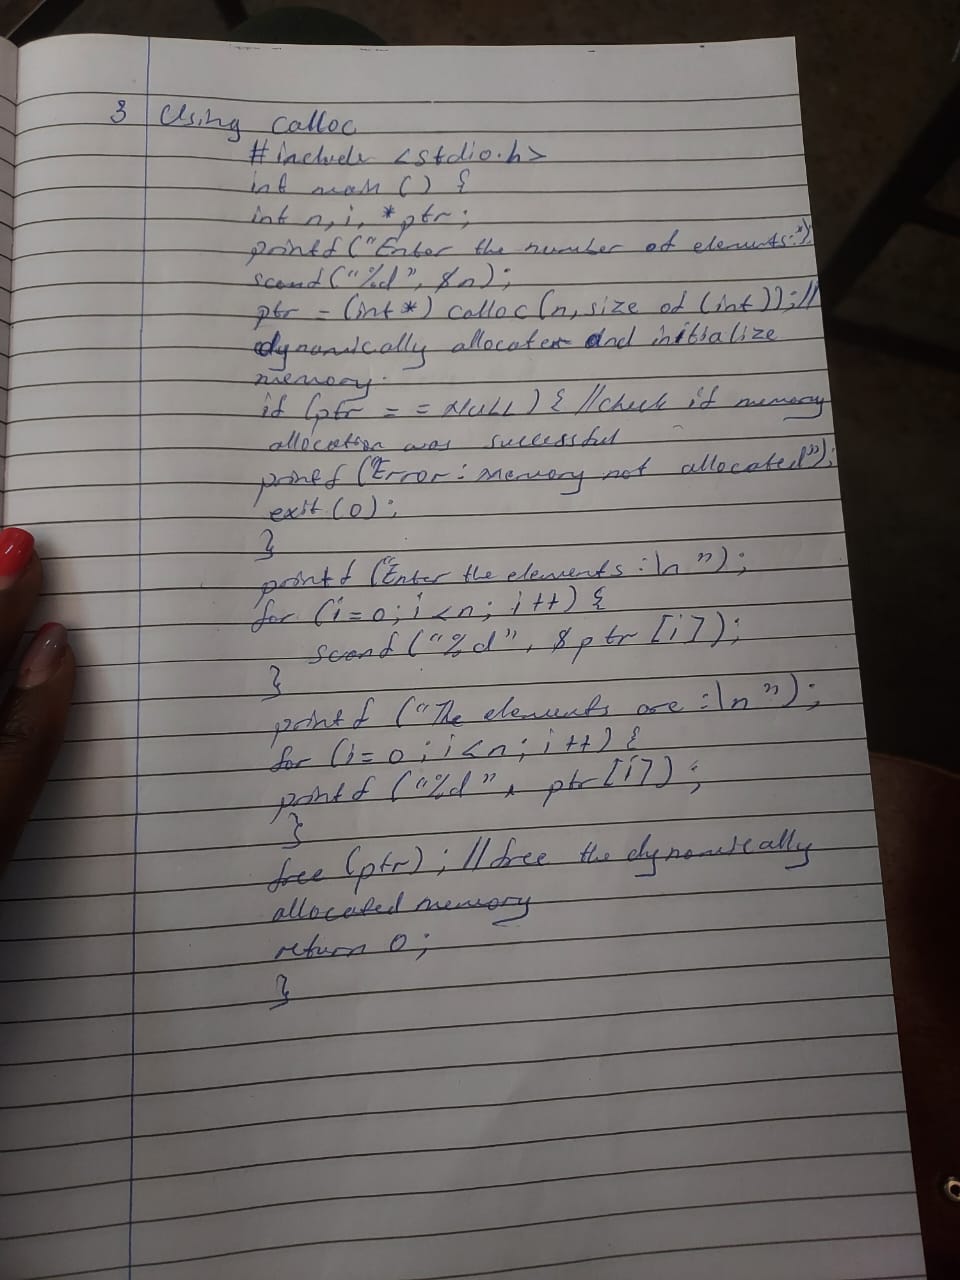 3 Using calloc
#include <stdio.h>
int main () {
int n, i, *ptr;
printf ("Enter the number of elements:");
scanf ("%d", &n);
ptr = (int *) calloc (n, size of (int)); //
dynamically allocates and initialize
memory.
if (ptr = = NULL) { //check if memory
allocation was successful
printf ("Error: memory not allocated");
exit (0);
}
printf ("Enter the elements :\n ");
for (i=0; i<n; i++) {
scanf ("%d", &ptr [i]);
}
printf ("The elements are :\n ");
for (i=0; i<n; i++) {
printf ("%d", ptr [i]);
}
free (ptr); //free the dynamically
allocated memory
return 0;
}